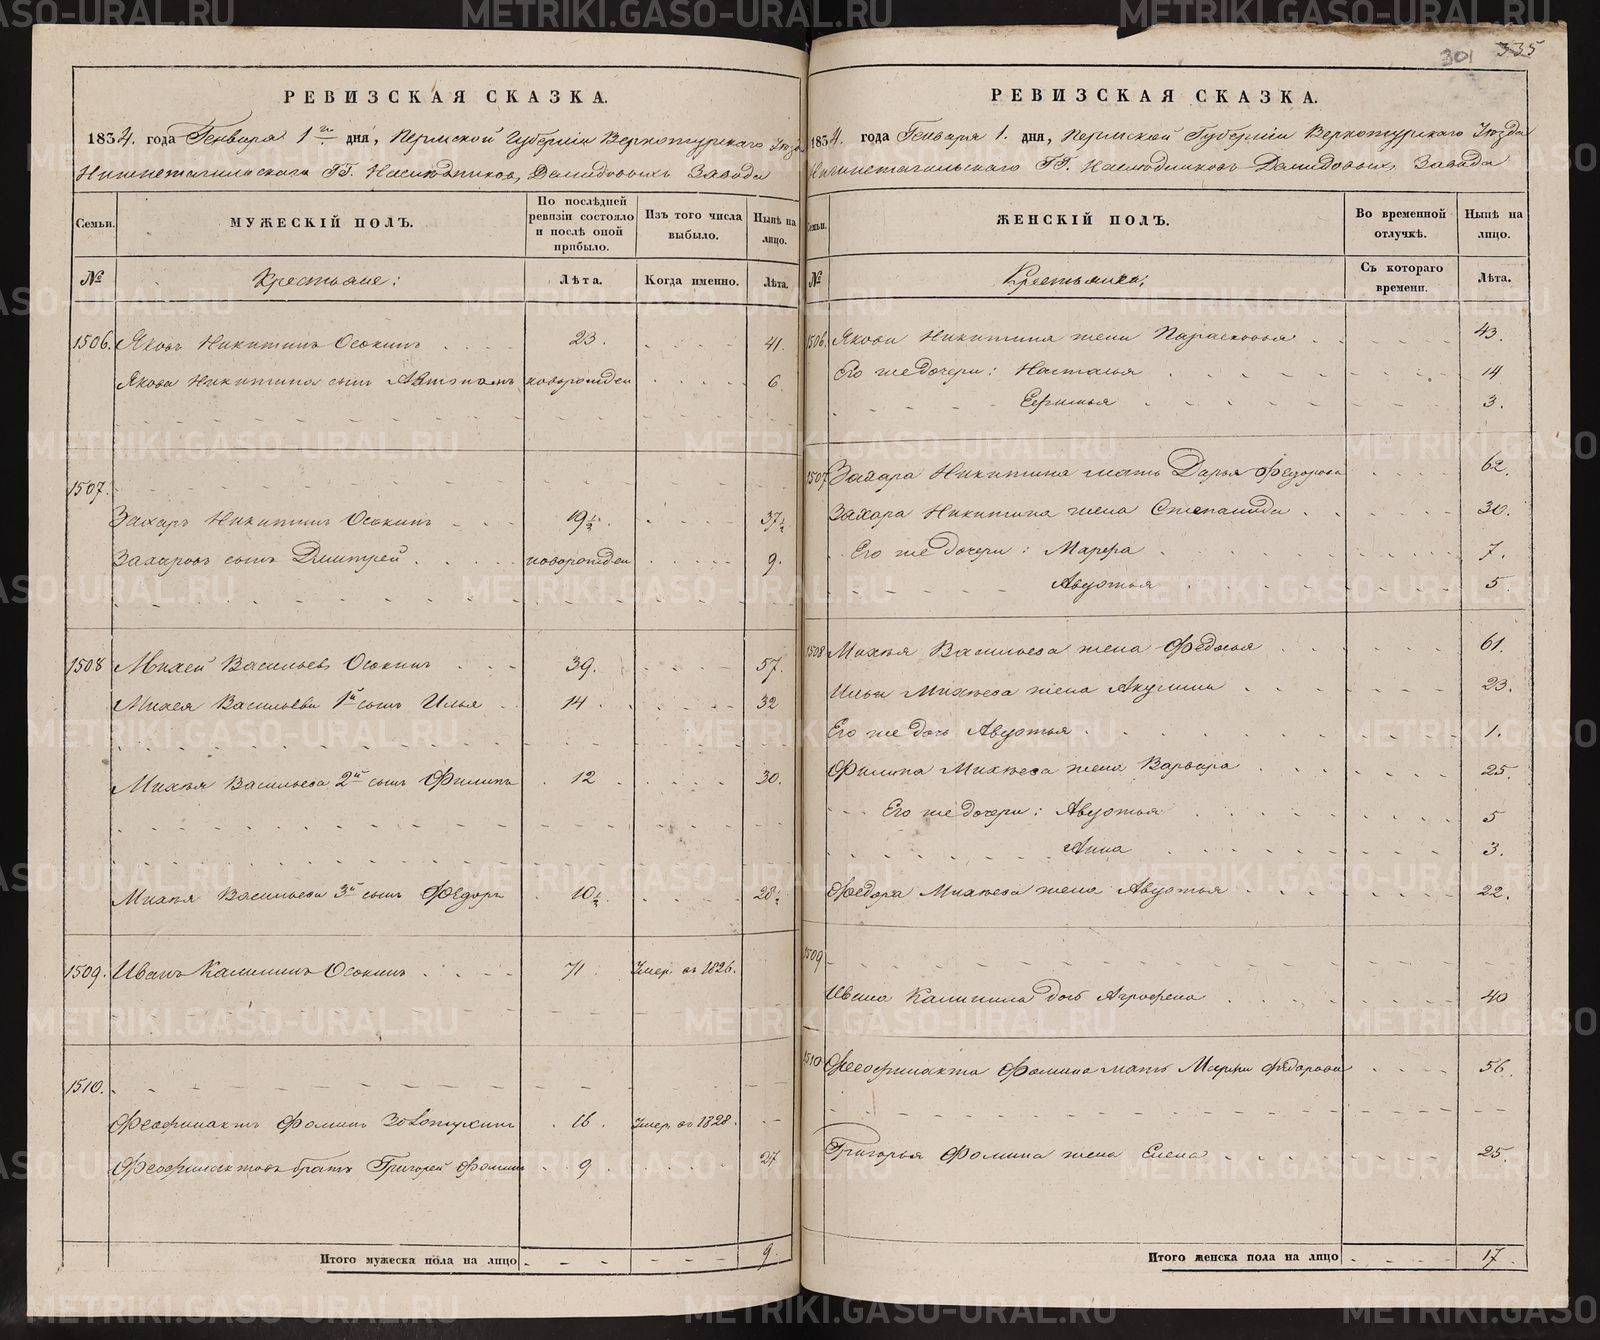 301 335
РЕВИЗСКАЯ СКАЗКА.
1834. года Генваря 1го дня, Пермской Губернiи Верхотурскаго Уѣзда
Нижнетагильскаго ГГ. Наслѣдниковъ Демидовыхъ Завода
Семьи. МУЖЕСКІЙ ПОЛЪ. По послѣдней ревизіи состояло и послѣ оной прибыло. Изъ того числа выбыло. Нынѣ на лицо.
№ Крестьяне: Лѣта. Когда именно. Лѣта.
1506. Яковъ Никитинъ Осокинъ 23. 41.
Якова Никитина сынъ новорожден 6
1507.
Захаръ Никитинъ Осокинъ 19½. 37½
Захаровъ сынъ Дмитрей новорожден 9.
1508 Михей Васильевъ Осокинъ 39. 57.
Михея Васильева 1й сынъ Илья 14. 32
Михѣя Васильева 2й сынъ Филипъ 12 30.
Михѣя Васильева 3й сынъ Федоръ 10½ 28½
1509. Иванъ Калининъ Осокинъ 71 Умер. въ 1826.
1510.
Феофилактъ Фоминъ 16. Умер. въ 1828.
Феофилактовъ братъ Григорей Фоминъ 9 27
Итого мужеска пола на лицо 9.
РЕВИЗСКАЯ СКАЗКА.
1834. года Генваря 1. дня, Пермской Губернiи Верхотурскаго Уѣзда
Нижнетагильскаго ГГ. Наслѣдниковъ Демидовыхъ Завода
Семьи. ЖЕНСКІЙ ПОЛЪ. Во временной отлучкѣ. Нынѣ на лицо.
№ Крестьянка; Съ котораго времени. Лѣта.
1506. Якова Никитина жена Парасковья 43.
Его же дочери: Наталья 14
3.
1507 Захара Никитина мать Дарья Федорова 62.
Захара Никитина жена Степанида 30.
Его же дочери: Марфа 7.
Авдотья 5
1508 Михѣя Васильева жена Федосья 61.
Ильи Михѣева жена Акулина 23.
Его же дочь Авдотья 1.
Филипа Михѣева жена Варвара 25.
Его же дочери: Авдотья 5
Анна 3.
Федора Михѣева жена Авдотья 22.
1509
Ивана Калинина дочь Агрофена 40
1510 Феофилакта Фомина мать Марья Федорова 56.
Григорья Фомина жена Елена 25.
Итого женска пола на лицо 17.
METRIKI.GASO-URAL.RU